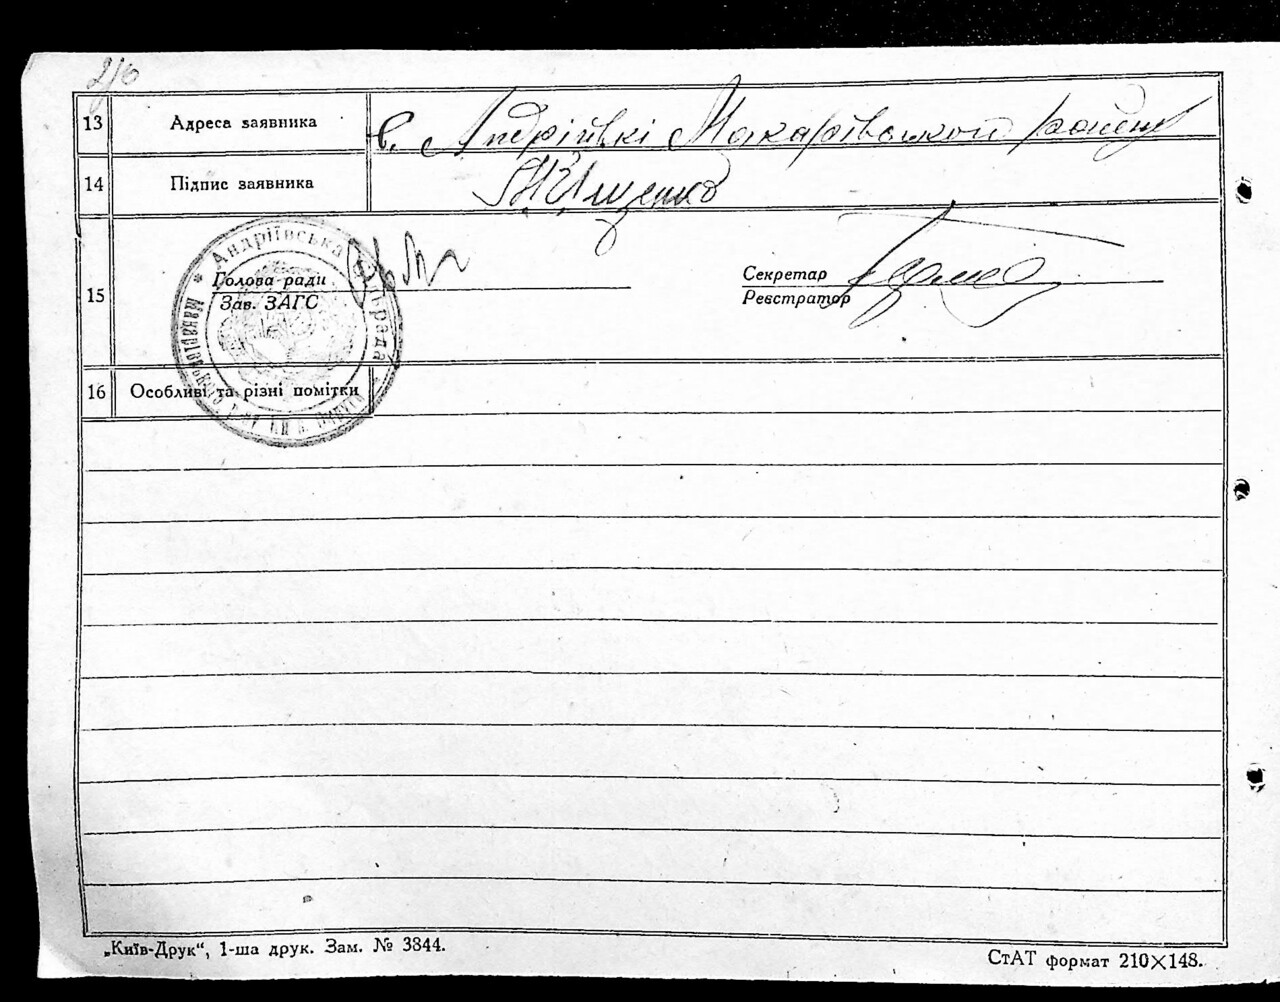 13 Адреса заявника с. Андріївкі Макарівського району
14 Підпис заявника Іщенко
15 Голова ради
Зав. ЗАГС
Секретар
Реєстратор
Андріївська
рада
16 Особливі та різні помітки
„Київ-Друк“, 1-ша друк. Зам. № 3344.
СтАТ формат 210×148.